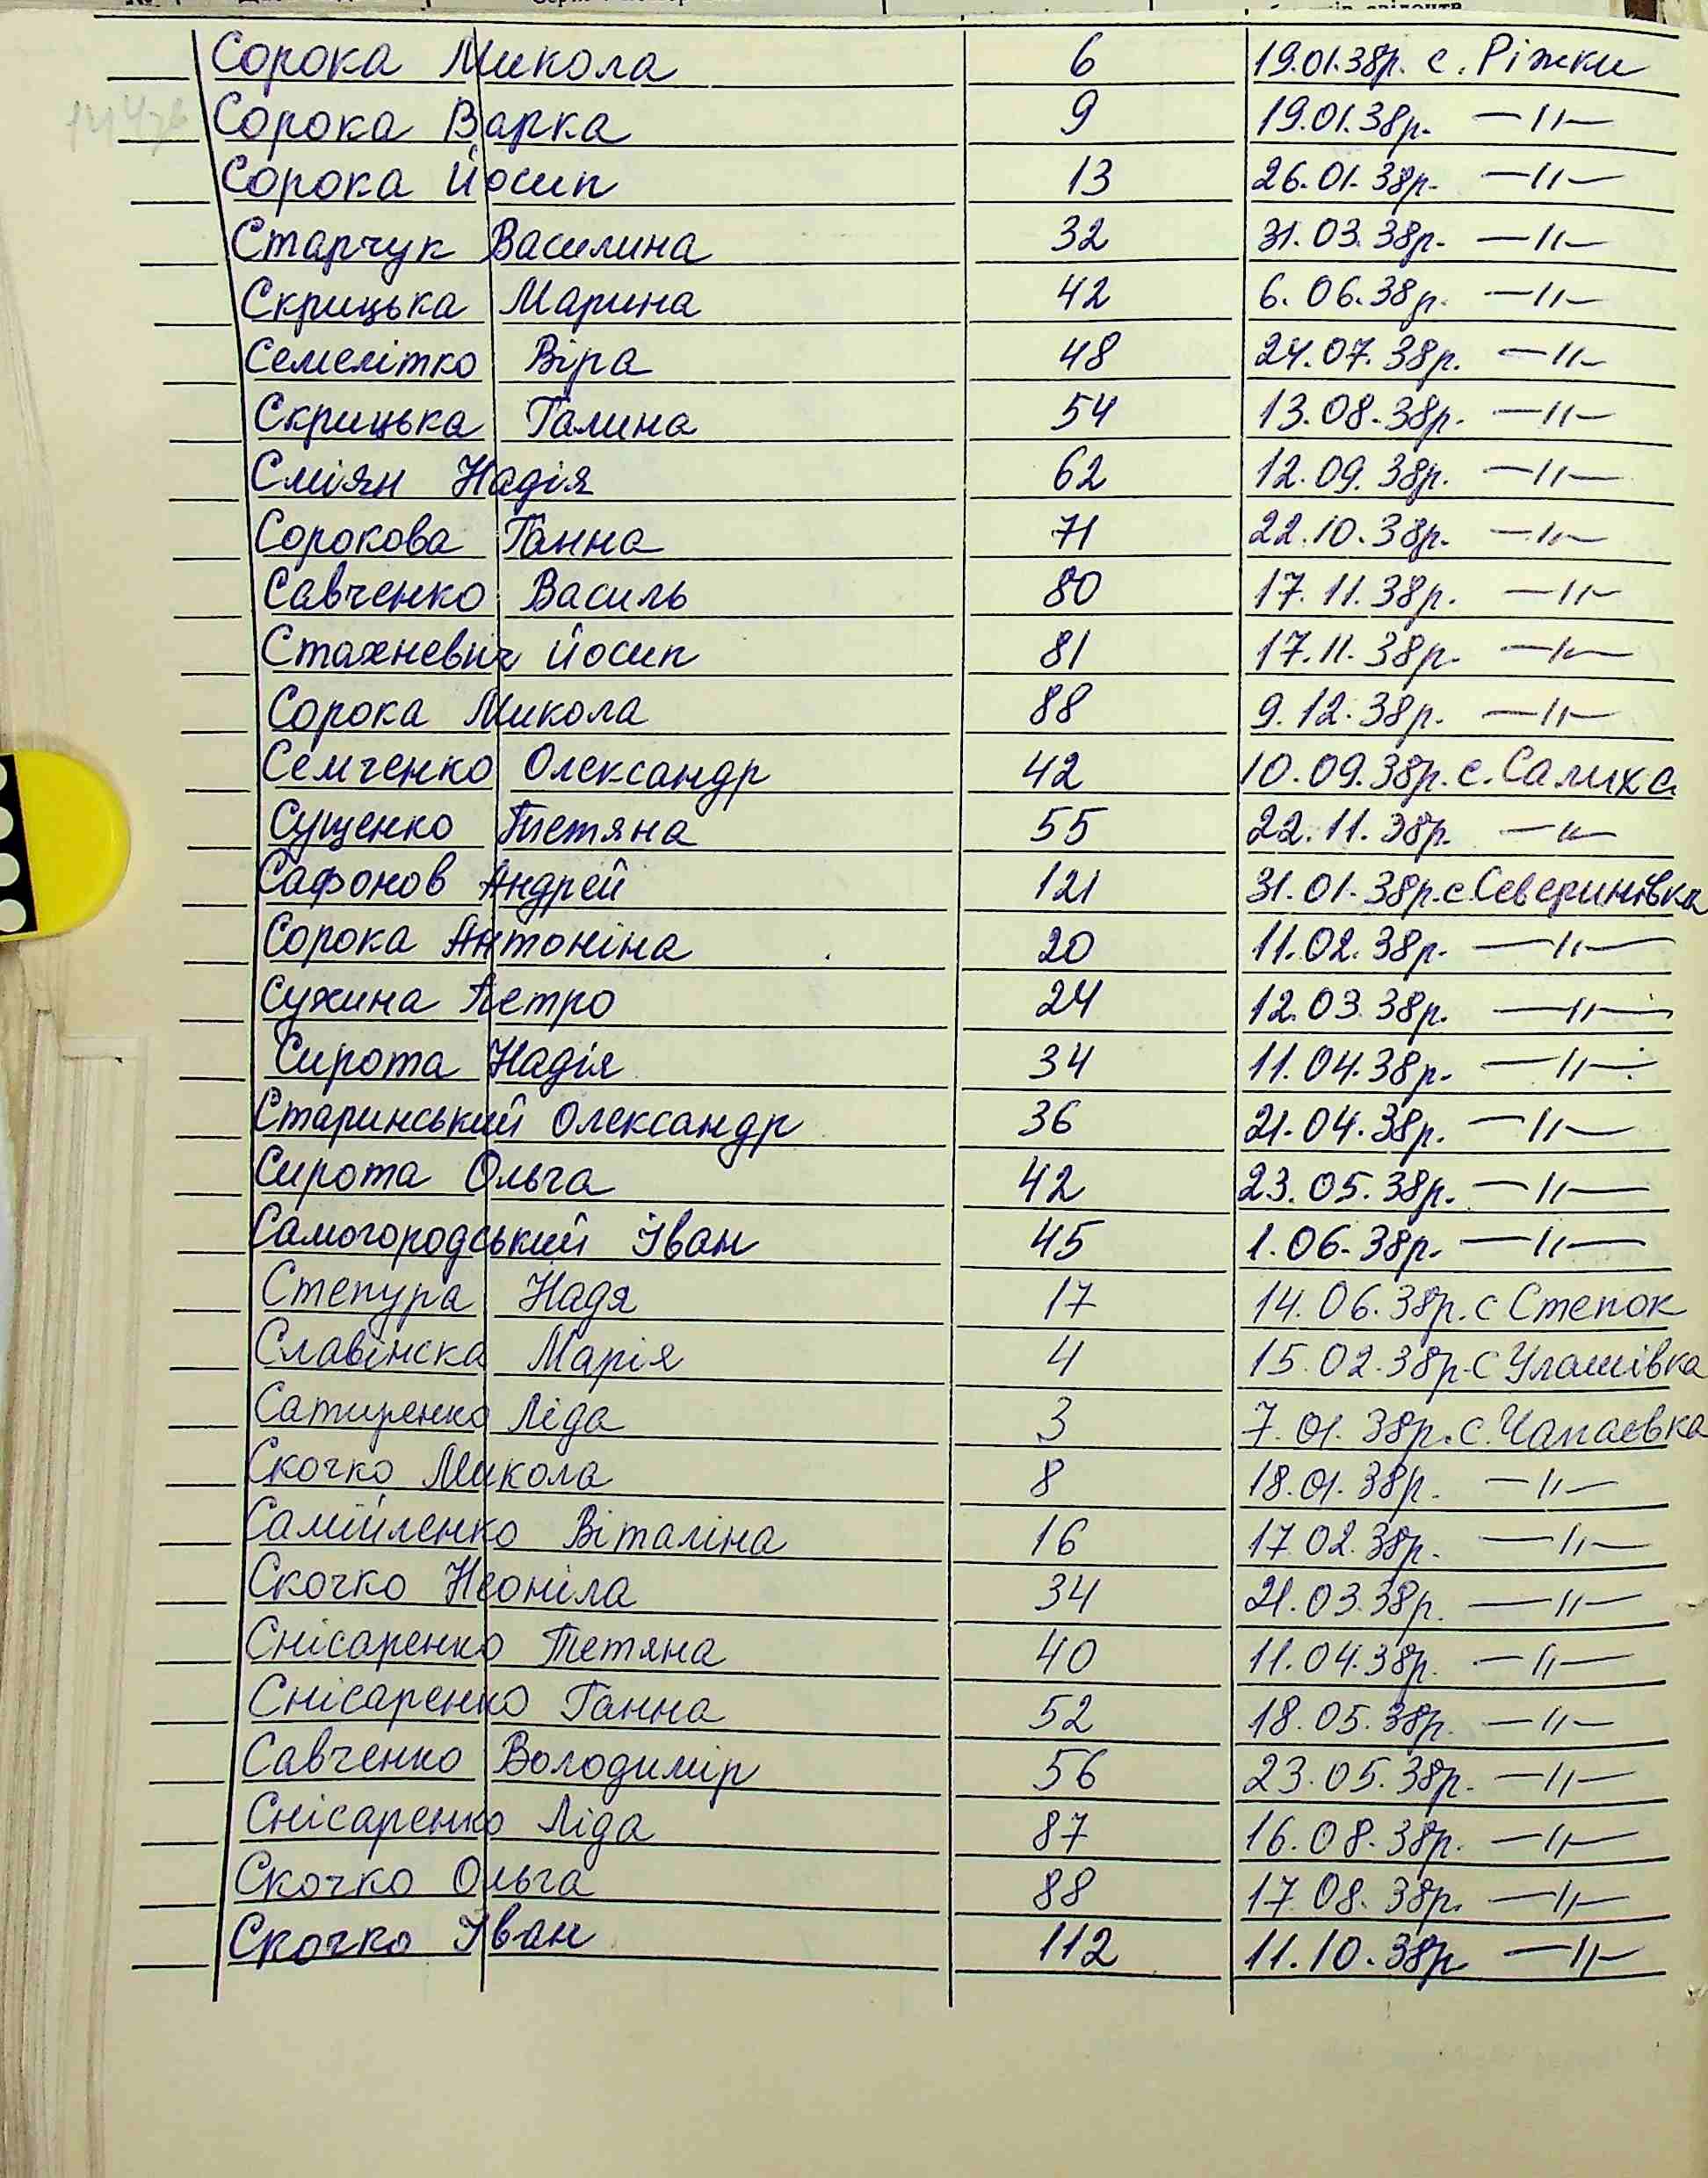 Сорока Микола 6 19.01.38р. с. Ріжки
Сорока Варка 9 19.01.38р. —//—
Сорока Йосип 13 26.01.38р. —//—
Старчук Василина 32 31.03.38р. —//—
Скрицька Марина 42 6.06.38р. —//—
Семелітко Віра 48 24.07.38р. —//—
Скрицька Галина 54 13.08.38р. —//—
Сміян Надія 62 12.09.38р. —//—
Сорокова Ганна 71 22.10.38р. —//—
Савченко Василь 80 17.11.38р. —//—
Стахневич Йосип 81 17.11.38р. —//—
Сорока Микола 88 9.12.38р. —//—
Семченко Олександр 42 10.09.38р. с. Салиха
Сущенко Тетяна 55 22.11.38р. —//—
Сафонов Андрей 121 31.01.38р. с. Северинівка
Сорока Антоніна 20 11.02.38р. —//—
Сухина Петро 24 12.03.38р. —//—
Сирота Надія 34 11.04.38р. —//—
Старинський Олександр 36 21.04.38р. —//—
Сирота Ольга 42 23.05.38р. —//—
Самогородський Іван 45 1.06.38р. —//—
Степура Надя 17 14.06.38р. с Степок
Славінска Марія 4 15.02.38р. с Улашівка
Сатиренко Ліда 3 7.01.38р. с. Чапаєвка
Скочко Микола 8 18.01.38р. —//—
Самійленко Віталіна 16 17.02.38р. —//—
Скочко Неоніла 34 21.03.38р. —//—
Снісаренко Тетяна 40 11.04.38р. —//—
Снісаренко Ганна 52 18.05.38р. —//—
Савченко Володимір 56 23.05.38р. —//—
Снісаренко Ліда 87 16.08.38р. —//—
Скочко Ольга 88 17.08.38р. —//—
Скочко Іван 112 11.10.38р —//—